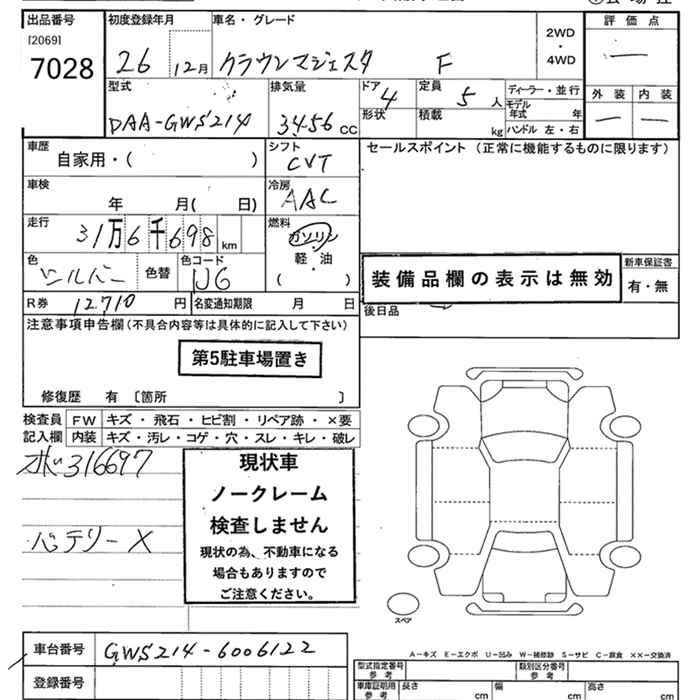 出品番号 初度登録年月 車名・グレード 2WD・4WD 評価点
[2069]
7028 26 12月 クラウンマジェスタ F —
型式 排気量 ドア 定員 ディーラー・並行 外装 内装
DAA-GWS214 3456 CC 4 5 人 モデル年式 年 — —
形状 積載 kg ハンドル 左・右
車歴 シフト セールスポイント (正常に機能するものに限ります)
自家用・( ) CVT
車検 冷房
年 月( 日) AAC
走行 燃料
31万6千698 km ガソリン
軽・油
色 色コード ( )
シルバー 色替 1J6 装備品欄の表示は無効 新車保証書
有・無
R券 12.710 円 名変通知期限 月 日 後日品
注意事項申告欄(不具合内容等は具体的に記入して下さい)
第5駐車場置き
修復歴 有 〔箇所 〕
検査員 FW キズ・飛石・ヒビ割・リペア跡・×要
記入欄 内装 キズ・汚レ・コゲ・穴・スレ・キレ・破レ
316697
バッテリー X
現状車
ノークレーム
検査しません
現状の為、不動車になる
場合もありますので
ご注意ください。
スペア
A-キズ E-エクボ U-凹み W-補修跡 S-サビ C-腐食 ××-交換済
車台番号 GWS214-6006122
登録番号
型式指定番号 参考 類別区分番号 参考
車庫証明用 参考 長さ cm 幅 cm 高さ cm